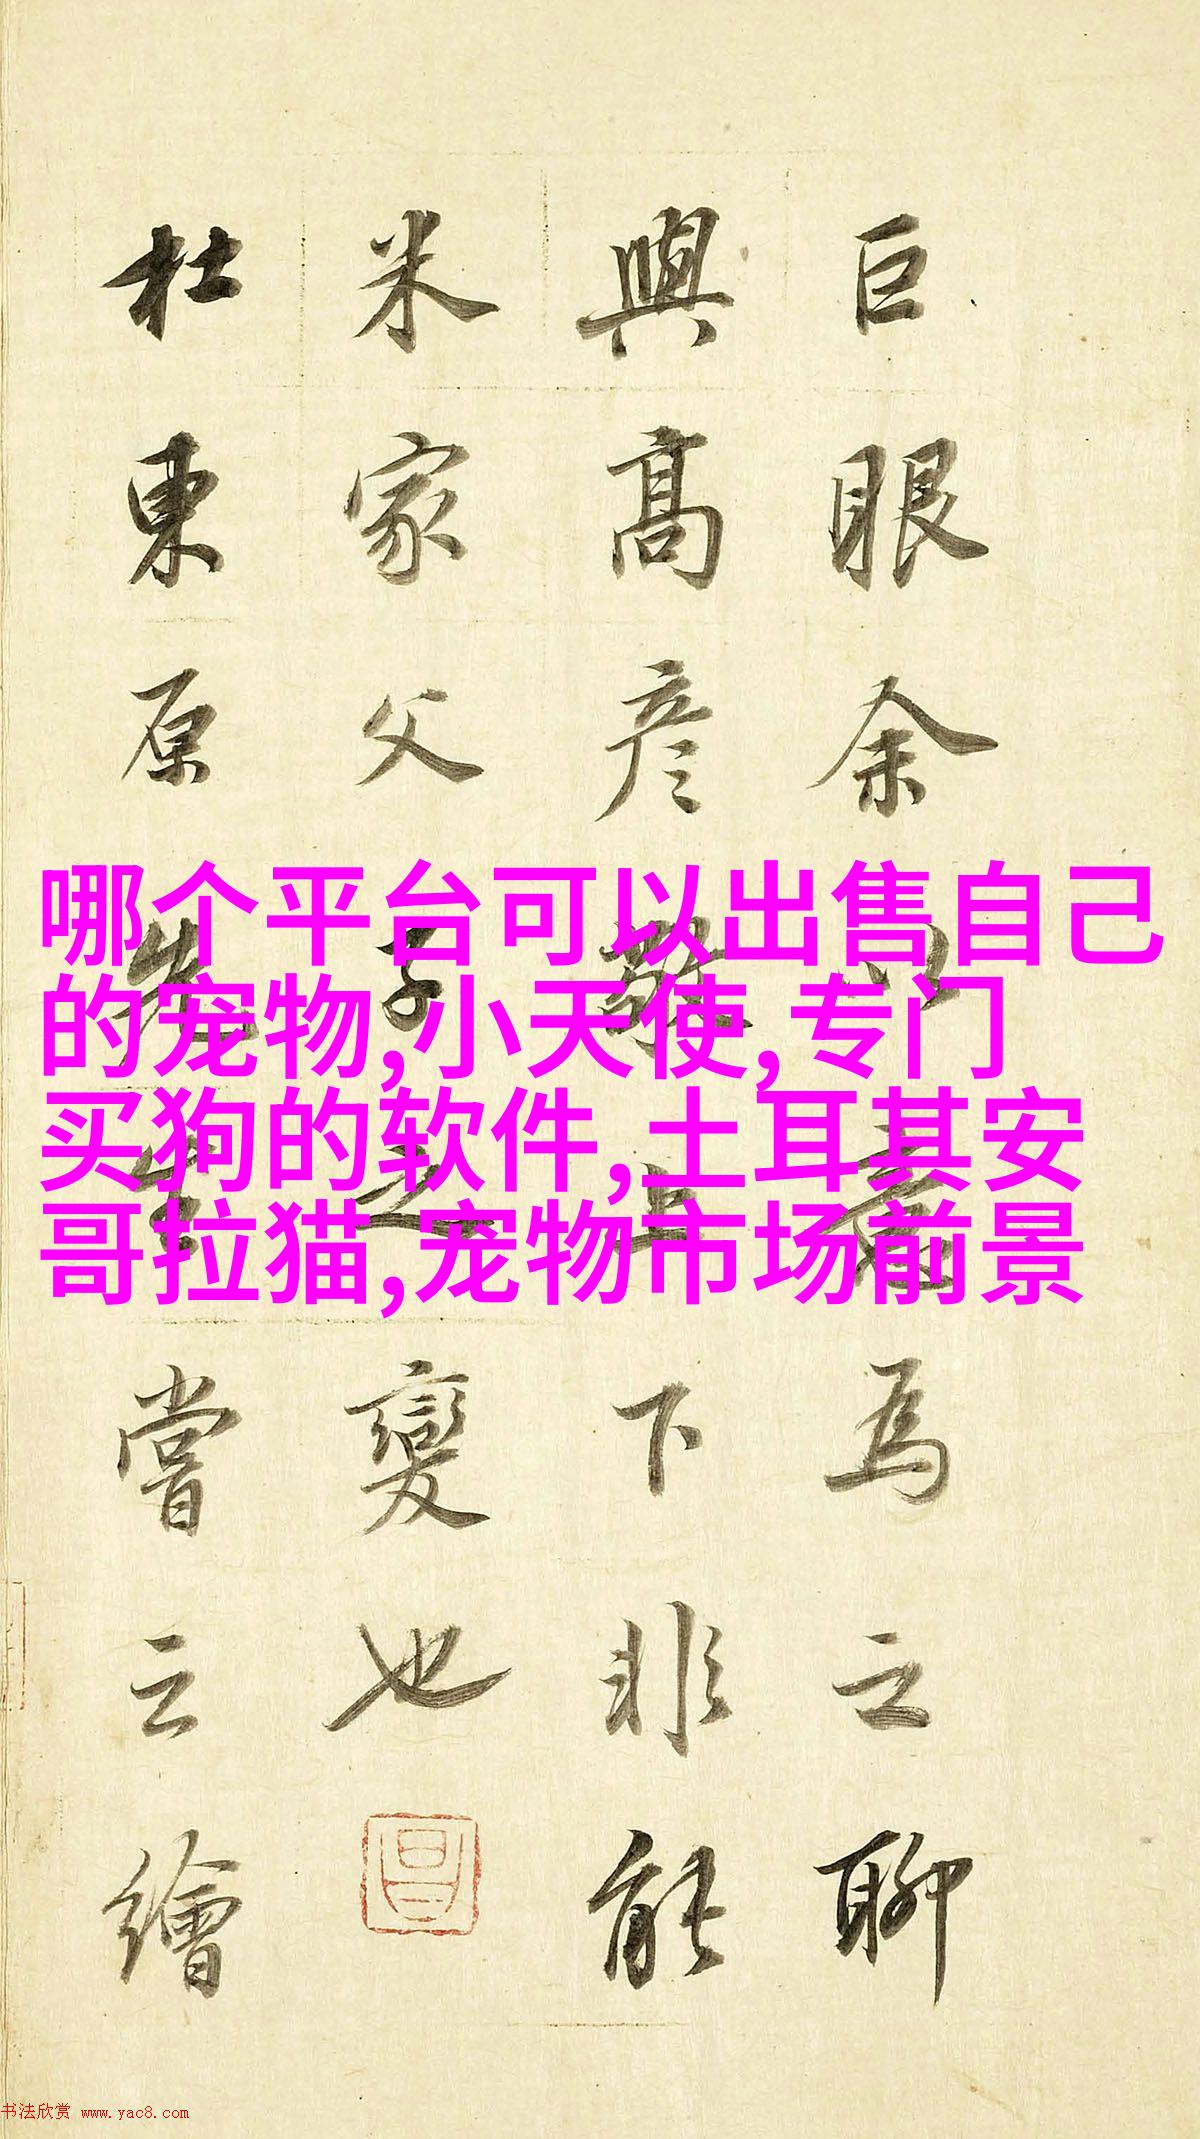 巨眼余以意為之聊
與高彥敬上下非能
米家父子之變也
杜東原先生嘗云繪
哪个平台可以出售自己
的宠物,小天使,专门
买狗的软件,土耳其安
哥拉猫,宠物市场前景
书法欣赏 www.yac8.com